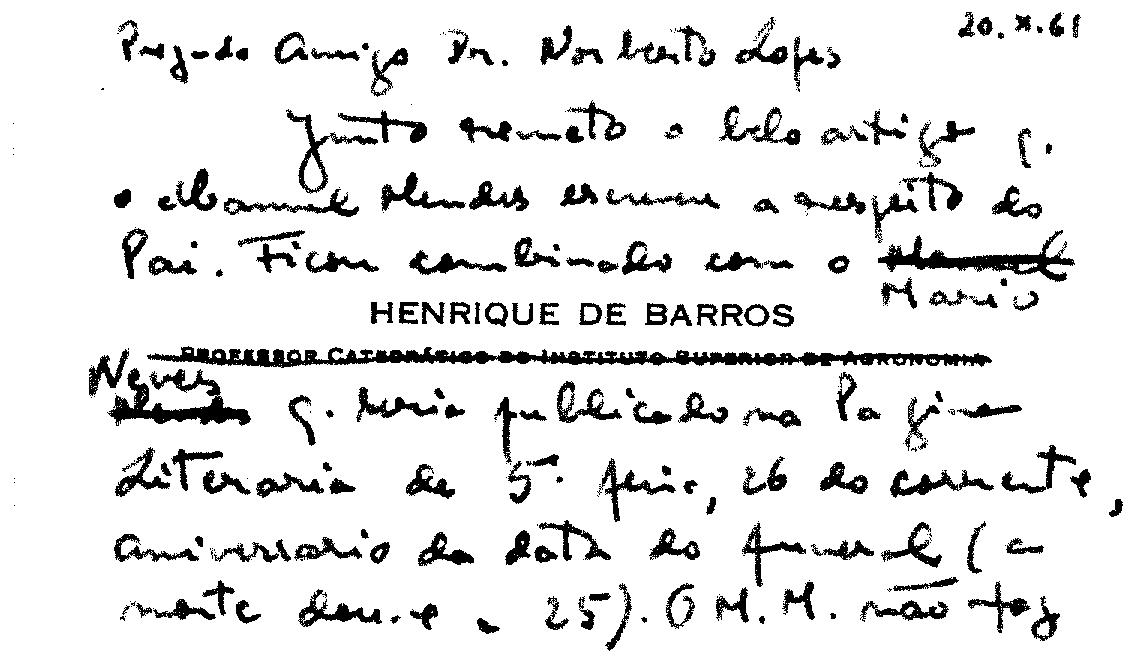 20. X. 61
Prezado Amigo Dr. Norberto Lopes
Junto remeto o belo artigo q.
o Manuel Mendes escreveu a respeito do
Pai. Ficou combinado com o Manuel
Mario
HENRIQUE DE BARROS
PROFESSOR CATEDRÁTICO DO INSTITUTO SUPERIOR DE AGRONOMIA
Neves
Mendes q. seria publicado na Pagina
Literaria de 5ª feira, 26 do corrente,
aniversario da data do funeral (a
morte deu-se a 25). O M. M. não faz